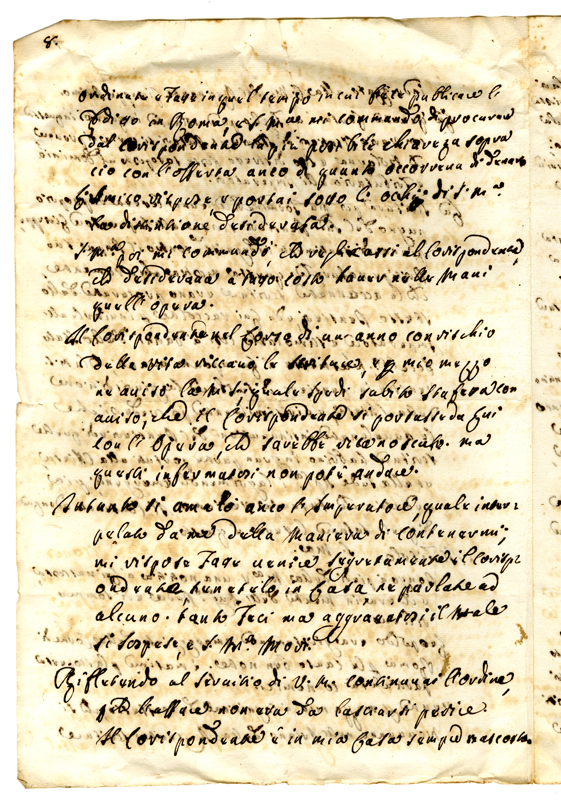 8.
in quel tempo in cui fece publicare l'
in Roma, e S. M. mi commandò di procurare
dal Corispondente la più possibile chiarezza sopra
ciò con l'offerta anco di quanto occorreva di denaro
rispose e portai sotto l'occhio di S. M.
la distintione desiderata.
S. M. poi mi commandò, che al Corispondente,
che desiderava a ogni costo havere nelle Mani
quell'opera.
Il Corispondente nel Corso di un anno con rischio
della vita le scritture, e per mio mezzo
ne avisò la M. S. quale spedì subito staffetta con
aviso, che il Corispondente si portasse da qui
con l'Opera, che sarebbe riconosciuto. ma
questi infermatosi non potè andare.
Intanto si amalò anco l'Imperatore, quale inter
pelato da me della Maniera di contenermi;
mi rispose venire segretamente il Corisp
ondente tenetelo in Casa ne parlate ad
alcuno. tanto feci ma aggravatosi il Male
si sospese e S. M. Morì.
Riflettendo al servitio di V. M. continuai l'ordine,
non era da lasciarsi
Il Corispondente è in mia Casa sempre nascosto.